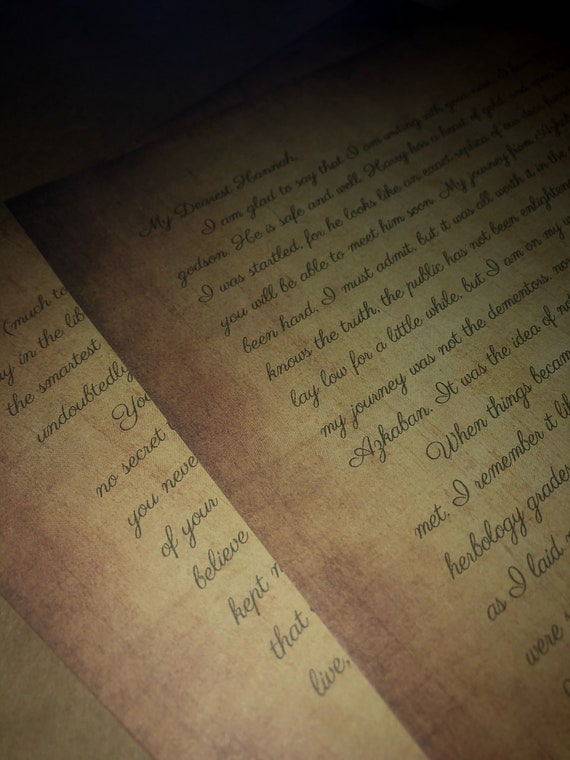 My Dearest Hannah,
I am glad to say that I am writing with good news. I have
godson. He is safe and well. Harry has a heart of gold, and
I was startled, for he looks like an exact replica of our dear
you will be able to meet him soon. My journey from
been hard, I must admit, but it was all worth it in the
knows the truth, the public has not been enlightened
lay low for a little while, but I am on my
my journey was not the dementors, nor
Azkaban. It was the idea of not
When things became
met. I remember it like
herbology grades
as I laid
were
(much to
in the
the smartest
undoubtedly
You
no secret
you never
of your
believe
kept
that
live,